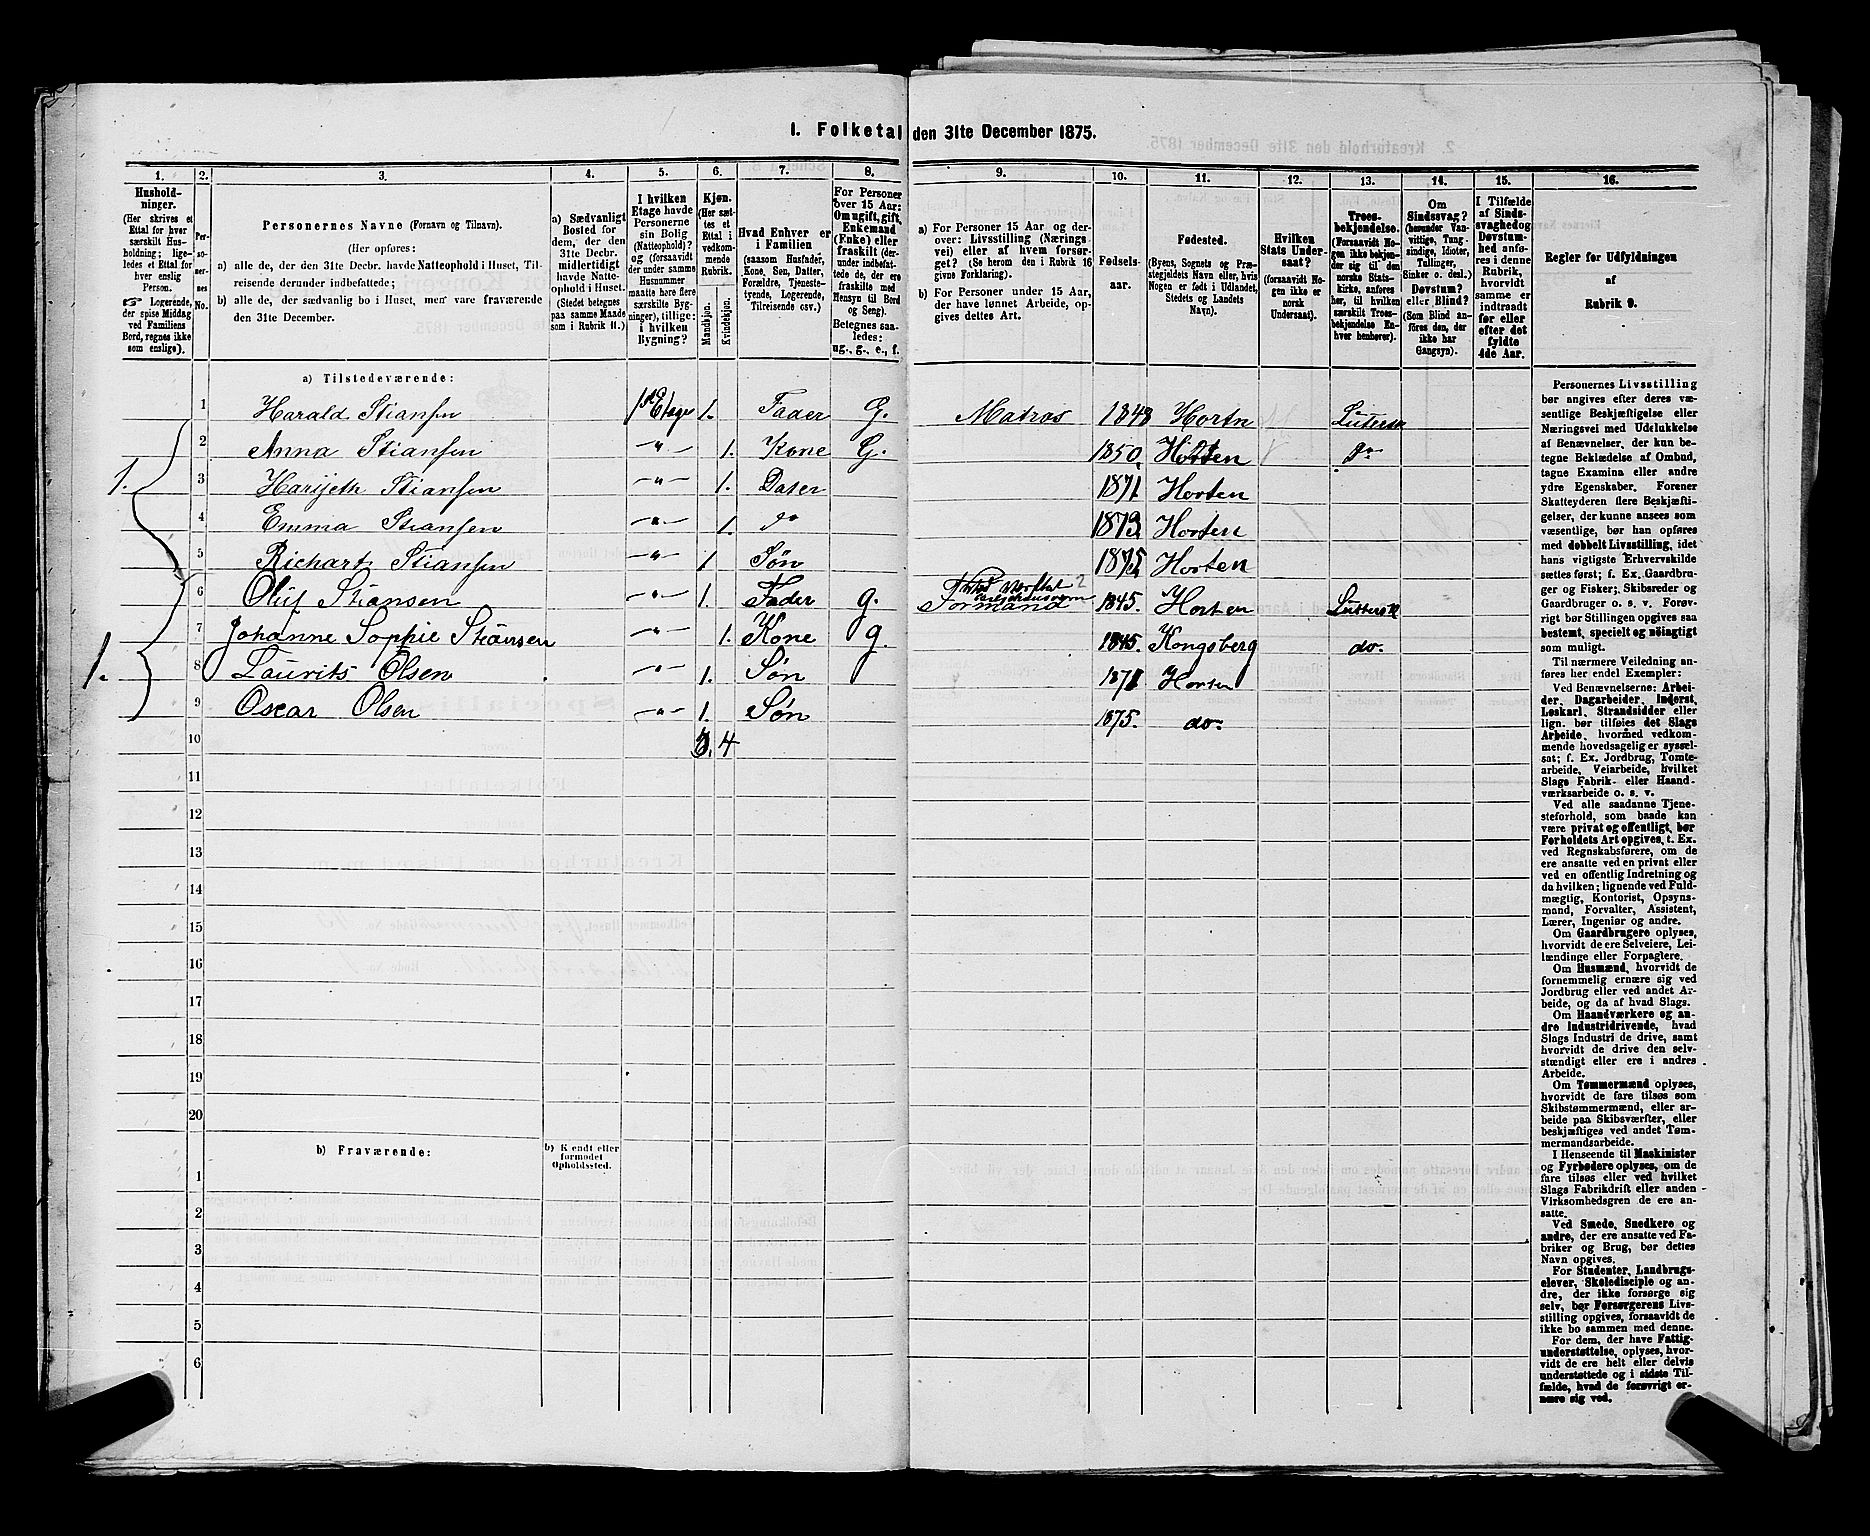 1. Folketal den 31te December 1875.
1. 2. 3. 4. 5. 6. 7. 8. 9. 10. 11. 12. 13. 14. 15. 16.
Hushold-
ninger.
(Her skrives et
Ettal for hver
særskilt Hus-
holdning; lige-
ledes et Ettal for
hver enslig
Person.
Logerende,
der spise Middag
ved Familiens
Bord, regnes ikke
som enslige).
Per-
so-
ner-
nes
No.
Personernes Navne (Fornavn og Tilnavn).
(Her opføres:
a) alle de, der den 31te Decbr. havde Natteophold i Huset, Til-
reisende derunder indbefattede;
b) alle de, der sædvanlig bo i Huset, men vare fraværende
den 31te December.
a) Sædvanligt
Bosted for
dem, der den
31te Decbr.
midlertidigt
havde Natte-
ophold i Huset.
(Stedet betegnes
paa samme Maade
som i Rubrik 11.)
I hvilken
Etage havde
Personerne
sin Bolig
(Natteophold)?
og (forsaavidt
der under samme
Husnummer
maatte høre flere
særskilte Byg-
ninger), tillige:
i hvilken
Bygning?
Kjøn.
(Her sæt-
tes et
Ettal i
vedkom-
mende
Rubrik.
Mandkjøn.
Kvindekjøn.
Hvad Enhver er
i Familien
(saasom Husfader,
Kone, Søn, Datter,
Forældre, Tjeneste-
tyende, Logerende,
Tilreisende osv.)
For Personer
over 15 Aar:
Om ugift, gift,
Enkemand
(Enke) eller
fraskilt (der-
under indbefat-
tede de, der ere
fraskilte med
Hensyn til Bord
og Seng).
Betegnes saa-
ledes:
ug., g., e., f.
a) For Personer 15 Aar og der-
over: Livsstilling (Nærings-
vei) eller af hvem forsør-
get? (Se herom den i Rubrik 16
givne Forklaring).
b) For Personer under 15 Aar,
der have lønnet Arbeide, op-
gives dettes Art.
Fødsels-
aar.
Fødested.
(Byens, Sognets og Præ-
stegjeldets Navn eller, hvis
Nogen er født i Udlandet,
Stedets og Landets
Navn).
Hvilken
Stats Under-
saat?
(forsaavidt No-
gen ikke er
norsk
Undersaat).
Troes-
bekjendelse.
(Forsaavidt No-
gen ikke bekjen-
der sig til den
norske Stats-
kirke, anføres
her, til hvilken
særskilt Troes-
bekjendelse En-
hver henhører).
Om
Sindssvag?
(herunder Van-
vittige, Tung-
sindige, Idioter,
Tullinger,
Sinker o. desl.)
Døvstum?
eller Blind?
(Som Blind an-
føres den, der
ikke har
Gangsyn).
I Tilfælde
af Sinds-
svaghed og
Døvstum-
hed anfø-
res i denne
Rubrik,
hvorvidt
samme er
indtraadt
før eller
efter det
fyldte
4de Aar.
Regler før Udfyldningen
af
Rubrik 9.
a) Tilstedeværende:
1 Harald Stiansen 1ste Etage 1. Fader G. Matros 1848 Hortn Lutersk
2 Anna Stiansen -"- 1. Kone G. 1850. Horten do
1. 3 Harijeth Stiansen -"- 1. Dater 1871. Horten
4 Emma Stiansen -"- 1. do 1873. Horten
5 Richart Stiansen -"- 1 Søn 1875. Horten
6 Oluf Stiansen -"- 1. Fader g. Formand 1845. Horten Luttersk
7 Johanne Sophie Stiansen -"- 1. Kone g. 1845. Kongsberg do.
1. 8 Laurits Olsen -"- 1. Søn 1871 Horten
9 Oscar Olsen -"- 1. Søn 1875. do.
10 4
11
12
13
14
15
16
17
18
19
20
b) Fraværende:
b) Kendt eller
formodet
Opholdssted.
1
2
3
4
5
6
Personernes Livsstilling
bør angives efter deres væ-
sentlige Beskjæftigelse eller
Næringsvei med Udelukkelse
af Benævnelser, der kun be-
tegne Beklædelse af Ombud,
tagne Examina eller andre
ydre Egenskaber. Forener
Skatteyderen flere Beskjæfti-
gelser, der kunne ansees som
væsentlige, bør han opføres
med dobbelt Livsstilling, idet
hans vigtigste Erhvervskilde
sættes først; f. Ex. Gaardbru-
ger og Fisker; Skibsreder og
Gaardbruger o. s. v. Forøv-
rigt bør Stillingen opgives saa
bestemt, specielt og nøiagtigt
som muligt.
Til nærmere Veiledning an-
føres her endel Exempler:
Ved Benævnelserne: Arbei-
der, Dagarbeider, Inderst,
Løskarl, Strandsidder eller
lign. bør tilføies det Slags
Arbeide, hvormed vedkom-
mende hovedsagelig er syssel-
sat; f. Ex. Jordbrug, Tomte-
arbeide, Veiarbeide, hvilket
Slags Fabrik- eller Haand-
værksarbeide o. s. v.
Ved alle saadanne Tjene-
steforhold, som baade kan
være privat og offentligt, bør
Forholdets Art opgives, t. Ex.
ved Regnskabsførere, om de
ere ansatte ved en privat eller
ved en offentlig Indretning og
da hvilken; lignende ved Fuld-
mægtig, Kontorist, Opsyns-
mand, Forvalter, Assistent,
Lærer, Ingeniør og andre.
Om Gaardbrugere oplyses,
hvorvidt de ere Selveiere, Lei-
lændinge eller Forpagtere.
Om Husmænd, hvorvidt de
fornemmelig ernære sig ved
Jordbrug eller ved andet Ar-
beide, og da af hvad Slags.
Om Haandværkere og an-
dre Industridrivende, hvad
Slags Industri de drive, samt
hvorvidt de drive den selv-
stændigt eller ere i andres
Arbeide.
Om Tømmermænd oplyses,
hvorvidt de fare tilsøs som
Skibstømmermænd, eller ar-
beide paa Skibsværfter, eller
beskjæftiges ved andet Tøm-
mermandsarbeide.
I Henseende til Maskinister
og Fyrbødere oplyses, om de
fare tilsøs eller ved hvilket
Slags Fabrikdrift eller anden
Virksomhedsgren de ere an-
satte.
Ved Smede, Snedkere og
andre, der ere ansatte ved Fa-
briker og Brug, bør dettes
Navn opgives.
For Studenter, Landbrugs-
elever, Skoledisciple og an-
dre, der ikke forsørge sig
selv, bør Forsørgerens Livs-
stilling opgives, forsaavidt de
ikke bo sammen med denne.
For dem, der have Fattig-
understøttelse, oplyses, hvor-
vidt de ere helt eller delvis
understøttede og i sidste Til-
fælde, hvad de forøvrigt er-
nære sig ved.